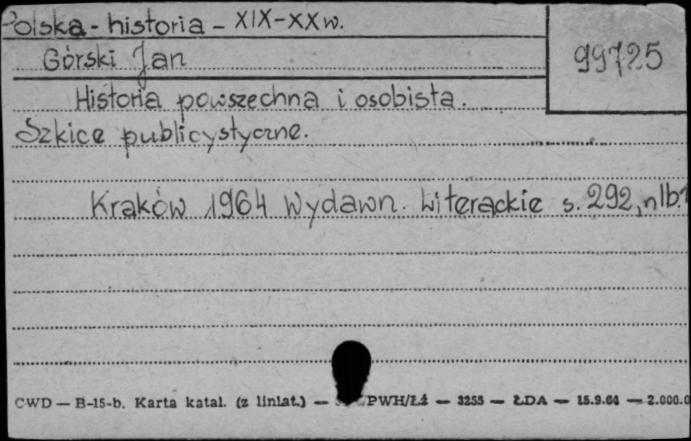 Polska - historia - XIX-XX w.
Górski Jan
99725
Historia powszechna i osobista.
Szkice publicystyczne.
Kraków 1964 Wydawn. Literackie s. 292, nlb. 1
CWD — B-15-b. Karta katal. (z liniat.) — PWH/Łż — 3255 — ŁDA — 15.9.64 — 2.000.0